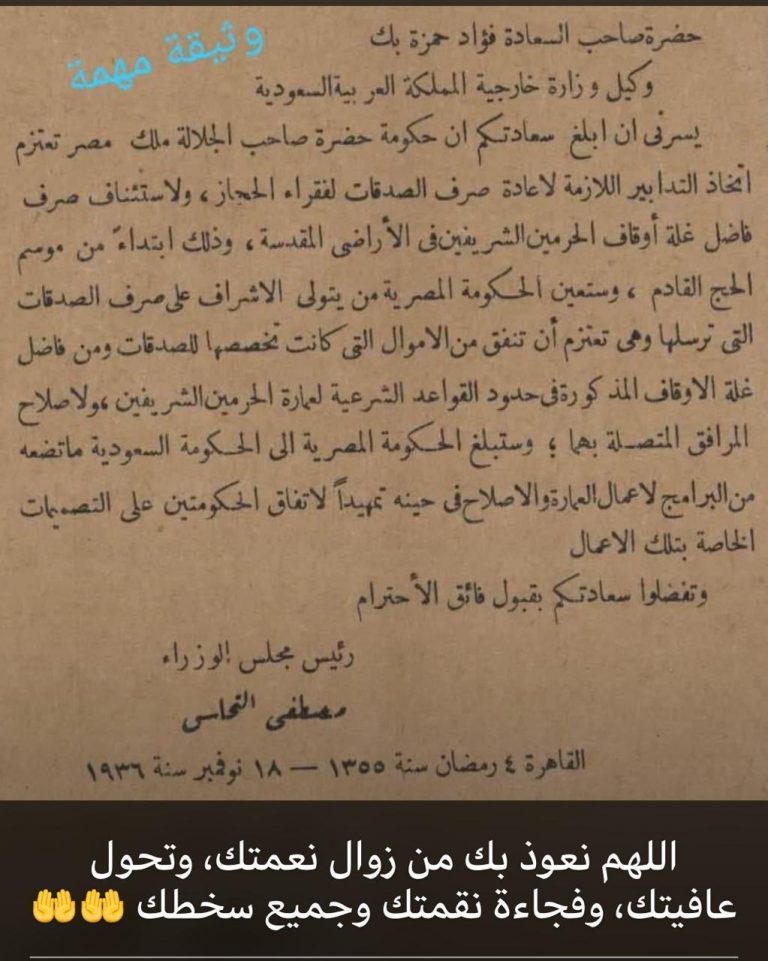 وثيقة مهمة
حضرة صاحب السعادة فؤاد حمزة بك
وكيل وزارة خارجية المملكة العربية السعودية
يسرنى ان ابلغ سعادتكم ان حكومة حضرة صاحب الجلالة ملك مصر تعتزم
اتخاذ التدابير اللازمة لاعادة صرف الصدقات لفقراء الحجاز ، ولاستئناف صرف
فاضل غلة أوقاف الحرمين الشريفين فى الأراضى المقدسة ، وذلك ابتداءً من موسم
الحج القادم ، وستعين الحكومة المصرية من يتولى الاشراف على صرف الصدقات
التى ترسلها وهى تعتزم أن تنفق من الاموال التى كانت تخصصها للصدقات ومن فاضل
غلة الاوقاف المذكورة فى حدود القواعد الشرعية لعمارة الحرمين الشريفين ، ولاصلاح
المرافق المتصلة بهما ؛ وستبلغ الحكومة المصرية الى الحكومة السعودية ماتضعه
من البرامج لاعمال العمارة والاصلاح فى حينه تمهيداً لاتفاق الحكومتين على التصميمات
الخاصة بتلك الاعمال
وتفضلوا سعادتكم بقبول فائق الأحترام
رئيس مجلس الوزراء
مصطفى النحاس
القاهرة ٤ رمضان سنة ١٣٥٥ — ١٨ نوفمبر سنة ١٩٣٦
اللهم نعوذ بك من زوال نعمتك، وتحول
عافيتك، وفجاءة نقمتك وجميع سخطك 🤲🤲